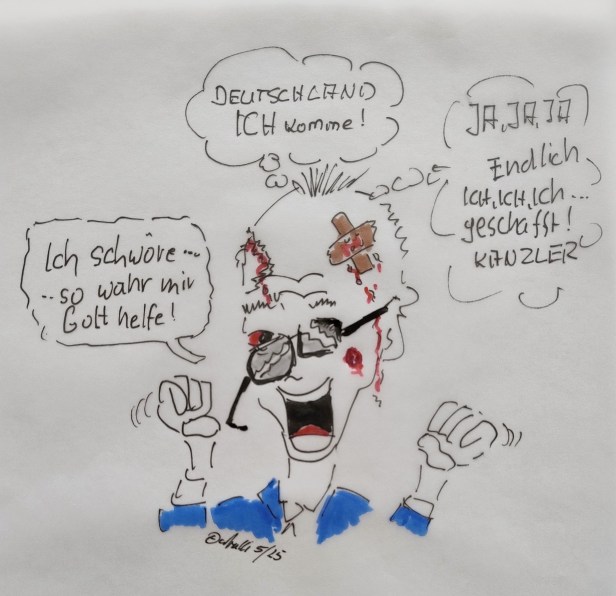 DEUTSCHLAND
ICH komme!
JA, JA, JA
Endlich
ICH, ICH, ICH...
geschafft!
KANZLER
Ich schwöre...
..so wahr mir
Gott helfe!
5/25